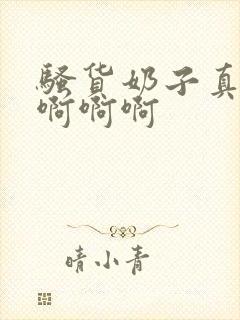 骚货奶子真
啊啊啊
晴小青